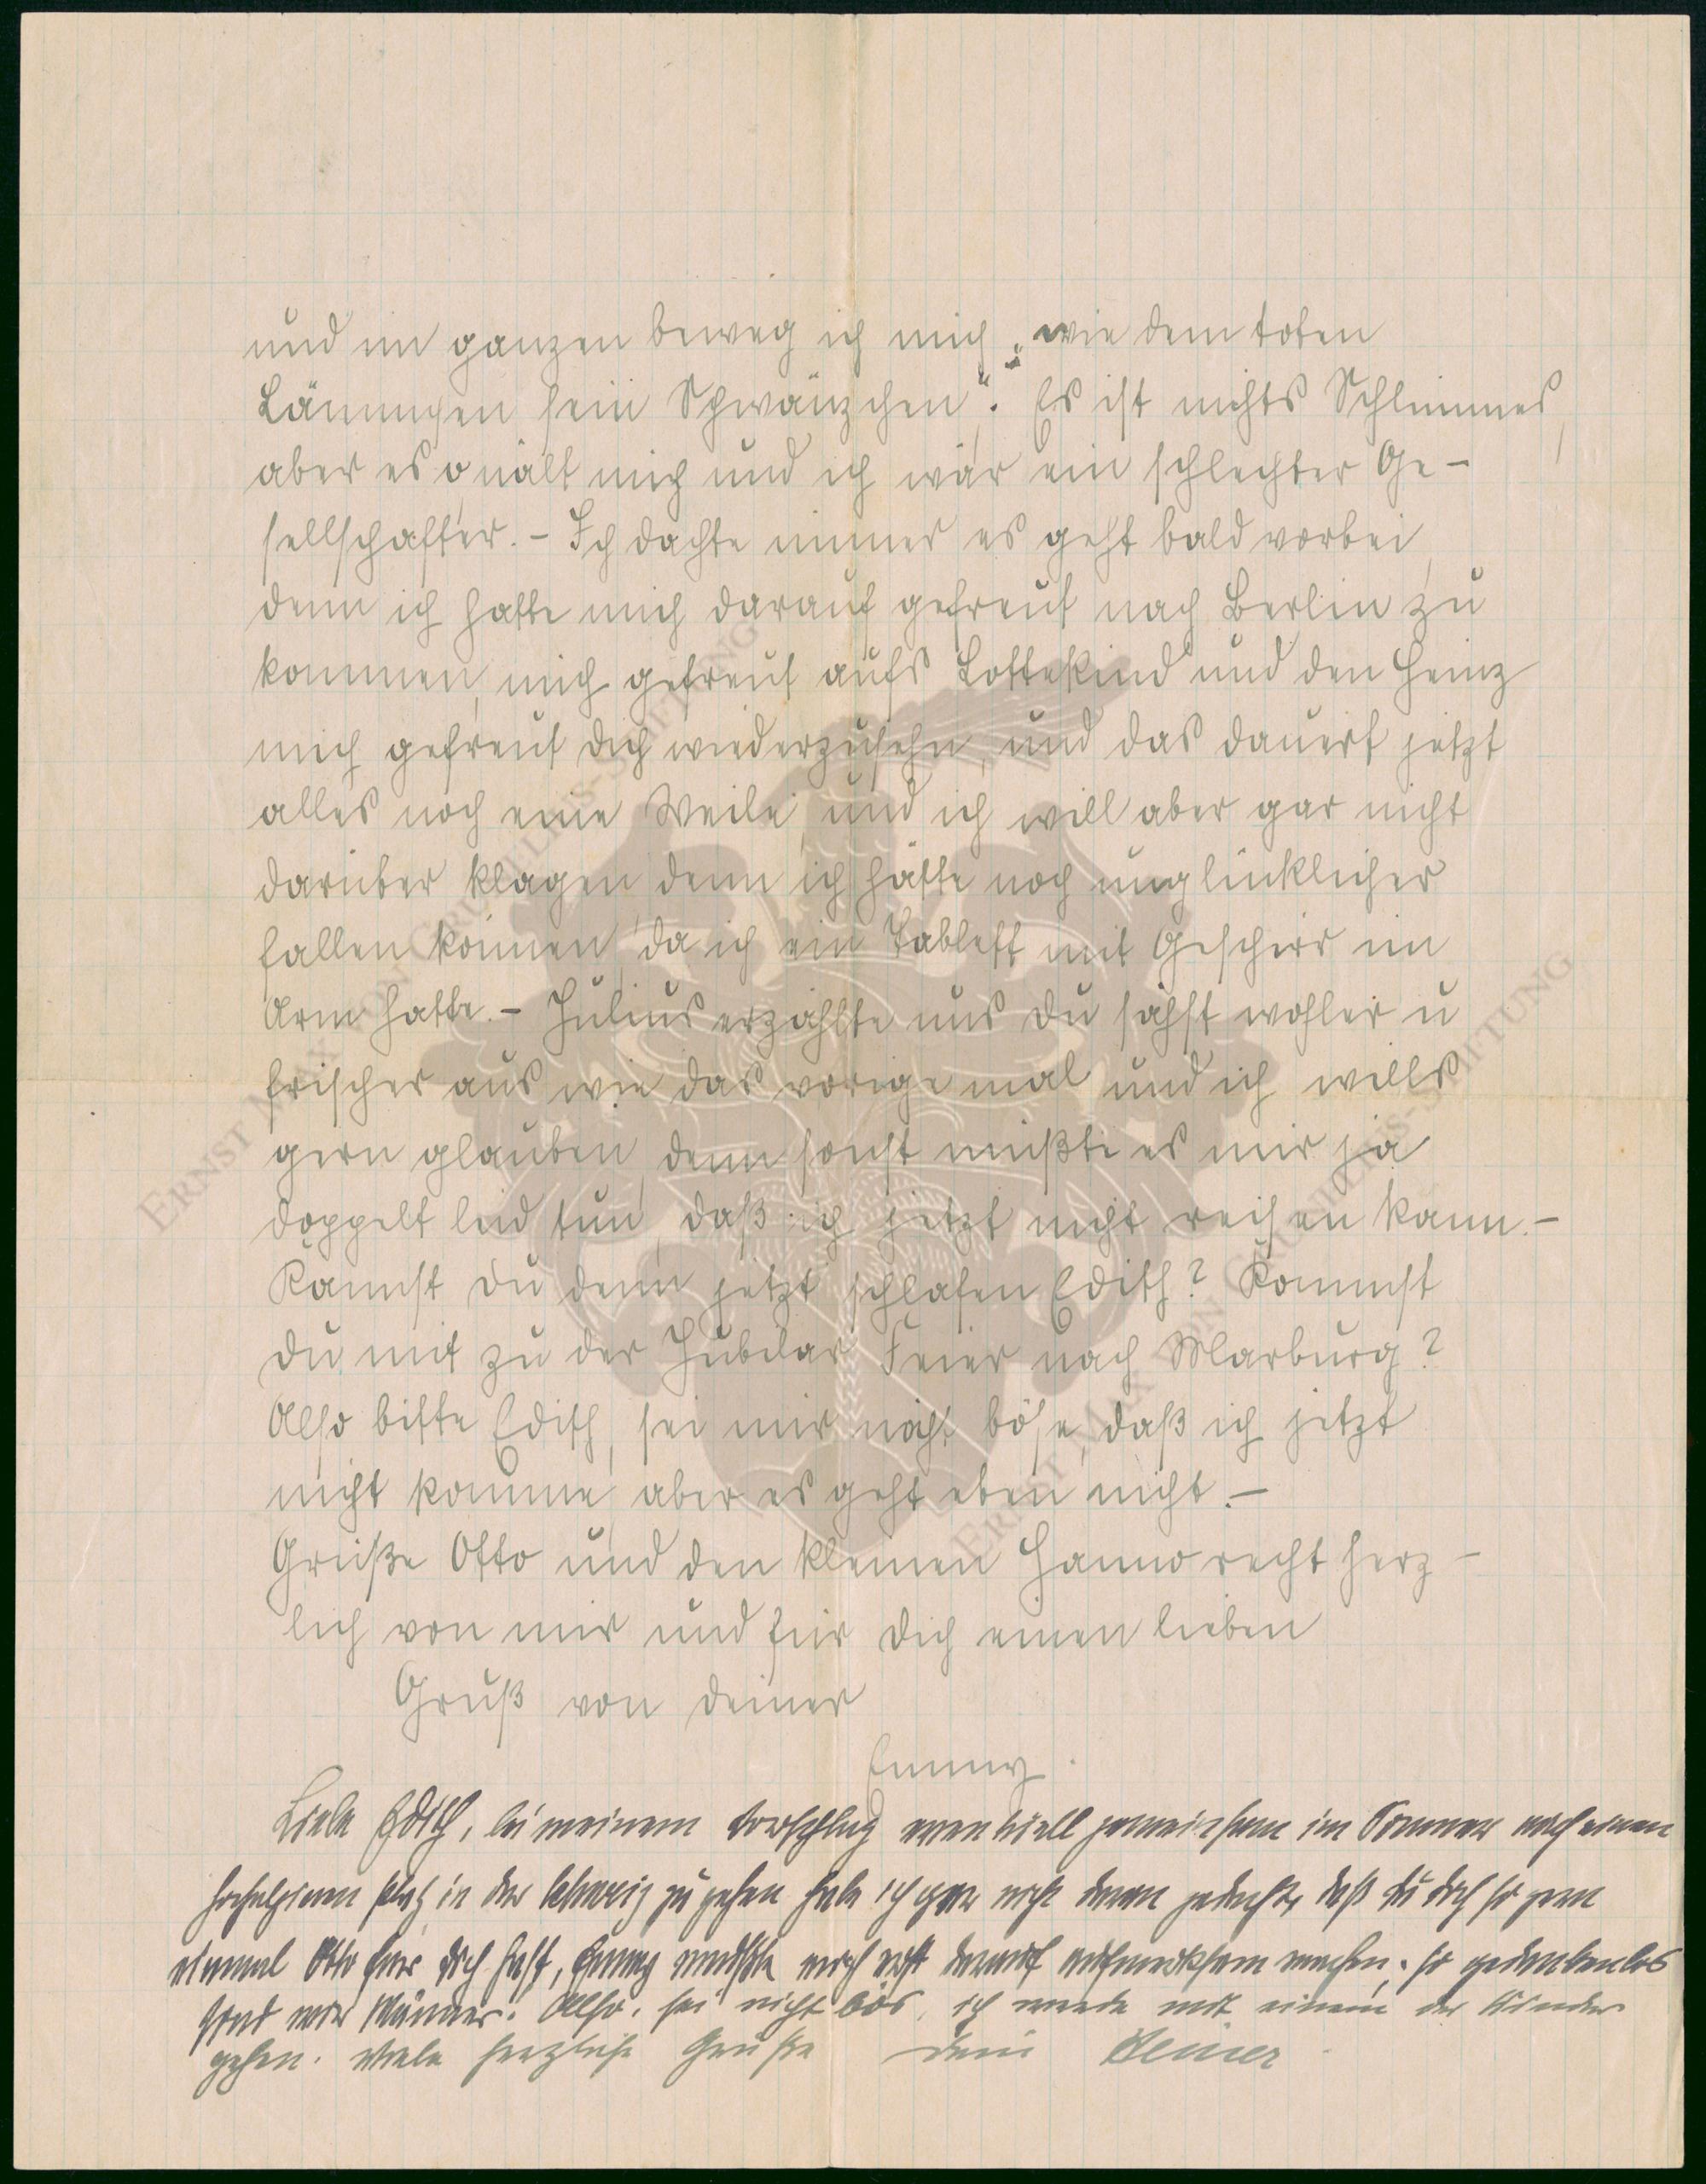 und im ganzen beweg ich mich „wie dem toten
Lämmchen sein Schwänzchen“. Es ist nichts Schlimmes,
aber es quält mich und ich wär ein schlechter Ge-
sellschafter. – Ich dachte immer es geht bald vorbei,
denn ich hatte mich darauf gefreut nach Berlin zu
kommen, mich gefreut aufs Lottekind und den Heinz
mich gefreut dich wiederzusehn, und das dauert jetzt
alles noch eine Weile, und ich will aber gar nicht
darüber klagen, denn ich hätte noch unglücklicher
fallen können, da ich ein Tablett mit Geschirr im
Arm hatte. – Julius erzählte uns du sähst wohler u
frischer aus wie das vorige mal und ich wills
gern glauben, denn sonst müßte es mir ja
doppelt leid tun, daß ich jetzt nicht reisen kann. –
Kannst du denn jetzt schlafen Edith? Kommst
du mit zu der Jubilar Feier nach Marburg?
Also bitte Edith, sei mir nicht böse, daß ich jetzt
nicht komme, aber es geht eben nicht. –
Grüße Otto und den kleinen Hanno recht herz-
lich von mir und für dich einen lieben
Gruß von deiner
Emmy.
Liebe Edith, bei meinem Vorschlag eventuell gemeinsam im Sommer nach einen
hochalpinen Platz in der Schweiz zu gehen habe ich gar nicht daran gedacht, daß du doch so gern
einmal Otto für dich hast, Emmy mußte mich erst darauf aufmerksam machen; so gedankenlos
sind wir Männer. Also, sei nicht bös, ich werde mit einem der Kinder
gehen. Viele herzliche Grüße dein Reiner.
ERNST MAX VON GRUNELIUS-STIFTUNG
ERNST MAX VON GRUNELIUS-STIFTUNG